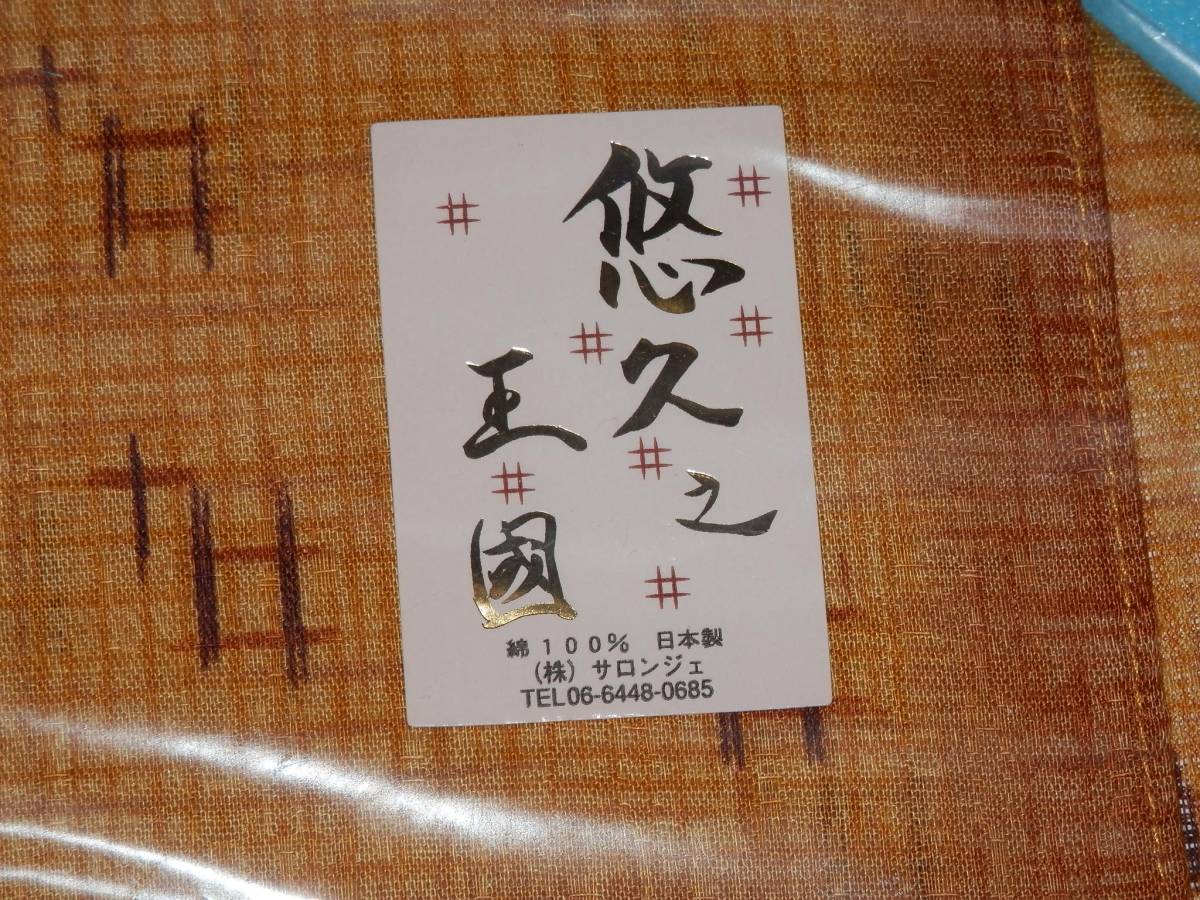 悠久之
王國
綿100% 日本製
(株)サロンジェ
TEL06-6448-0685